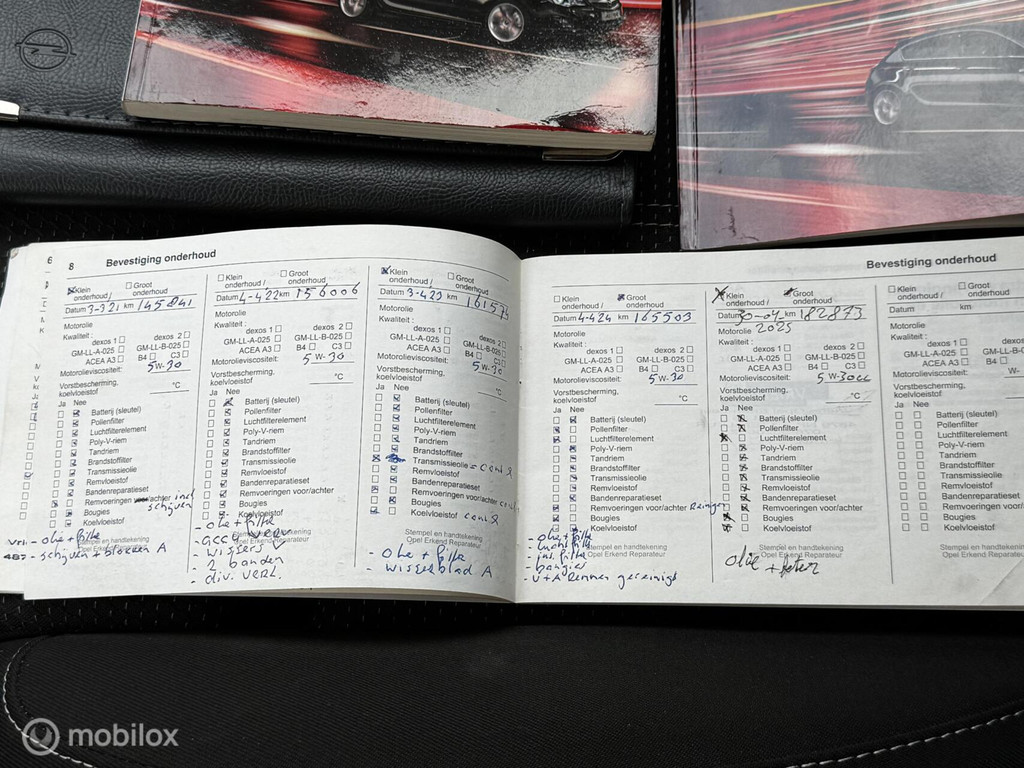 6
8 Bevestiging onderhoud
Klein onderhoud / Groot onderhoud
Datum 3-3 21 km 145841
Motorolie
Kwaliteit :
dexos 1 dexos 2
GM-LL-A-025 GM-LL-B-025
ACEA A3 B4 C3
Motorolieviscositeit: 5 W-30
Vorstbescherming, koelvloeistof °C
Ja Nee
Batterij (sleutel)
Pollenfilter
Luchtfilterelement
Poly-V-riem
Tandriem
Brandstoffilter
Transmissieolie
Remvloeistof
Bandenreparatieset
Remvoeringen achter incl schijven
Bougies
Koelvloeistof
Stempel en handtekening
Opel Erkend Reparateur
- olie + filter
- schijven + blokken A
Klein onderhoud / Groot onderhoud
Datum 4-4-22 km 156006
Motorolie
Kwaliteit :
dexos 1 dexos 2
GM-LL-A-025 GM-LL-B-025
ACEA A3 B4 C3
Motorolieviscositeit: 5 W-30
Vorstbescherming, koelvloeistof °C
Ja Nee
Batterij (sleutel)
Pollenfilter
Luchtfilterelement
Poly-V-riem
Tandriem
Brandstoffilter
Transmissieolie
Remvloeistof
Bandenreparatieset
Remvoeringen voor/achter
Bougies
Koelvloeistof
Stempel en handtekening
Opel Erkend Reparateur
- olie + filter
- wissers V
- 2 banden
- div. verl.
Klein onderhoud / Groot onderhoud
Datum 3-4 23 km
Motorolie
Kwaliteit :
dexos 1 dexos 2
GM-LL-A-025 GM-LL-B-025
ACEA A3 B4 C3
Motorolieviscositeit: 5 W-30
Vorstbescherming, koelvloeistof °C
Ja Nee
Batterij (sleutel)
Pollenfilter
Luchtfilterelement
Poly-V-riem
Tandriem
Brandstoffilter
Transmissieolie
Remvloeistof
Bandenreparatieset
Remvoeringen voor/achter
Bougies
Koelvloeistof
Stempel en handtekening
Opel Erkend Reparateur
- olie + filter
- wisserblad A
Bevestiging onderhoud
Klein onderhoud / Groot onderhoud
Datum 4-4 24 km 165503
Motorolie
Kwaliteit :
dexos 1 dexos 2
GM-LL-A-025 GM-LL-B-025
ACEA A3 B4 C3
Motorolieviscositeit: 5 W-30
Vorstbescherming, koelvloeistof °C
Ja Nee
Batterij (sleutel)
Pollenfilter
Luchtfilterelement
Poly-V-riem
Tandriem
Brandstoffilter
Transmissieolie
Remvloeistof
Bandenreparatieset
Remvoeringen voor/achter
Bougies
Koelvloeistof
Stempel en handtekening
Opel Erkend Reparateur
- olie + filter
- int. filter
- bougies
- V+A Remmen gereinigd
Klein onderhoud / Groot onderhoud
Datum 30-04 km 182873
Motorolie 2025
Kwaliteit :
dexos 1 dexos 2
GM-LL-A-025 GM-LL-B-025
ACEA A3 B4 C3
Motorolieviscositeit: 5 W-30
Vorstbescherming, koelvloeistof °C
Ja Nee
Batterij (sleutel)
Pollenfilter
Luchtfilterelement
Poly-V-riem
Tandriem
Brandstoffilter
Transmissieolie
Remvloeistof
Bandenreparatieset
Remvoeringen voor/achter
Bougies
Koelvloeistof
Stempel en handtekening
Opel Erkend Reparateur
Olie + filter
Klein onderhoud / Groot onderhoud
Datum km
Motorolie
Kwaliteit :
dexos 1
GM-LL-A-025
ACEA A3
Motorolieviscositeit: W-
Vorstbescherming, koelvloeistof
Ja Nee
Batterij (sleutel)
Pollenfilter
Luchtfilterelement
Poly-V-riem
Tandriem
Brandstoffilter
Transmissieolie
Remvloeistof
Bandenreparatieset
Remvoeringen voor/achter
Bougies
Koelvloeistof
mobilox